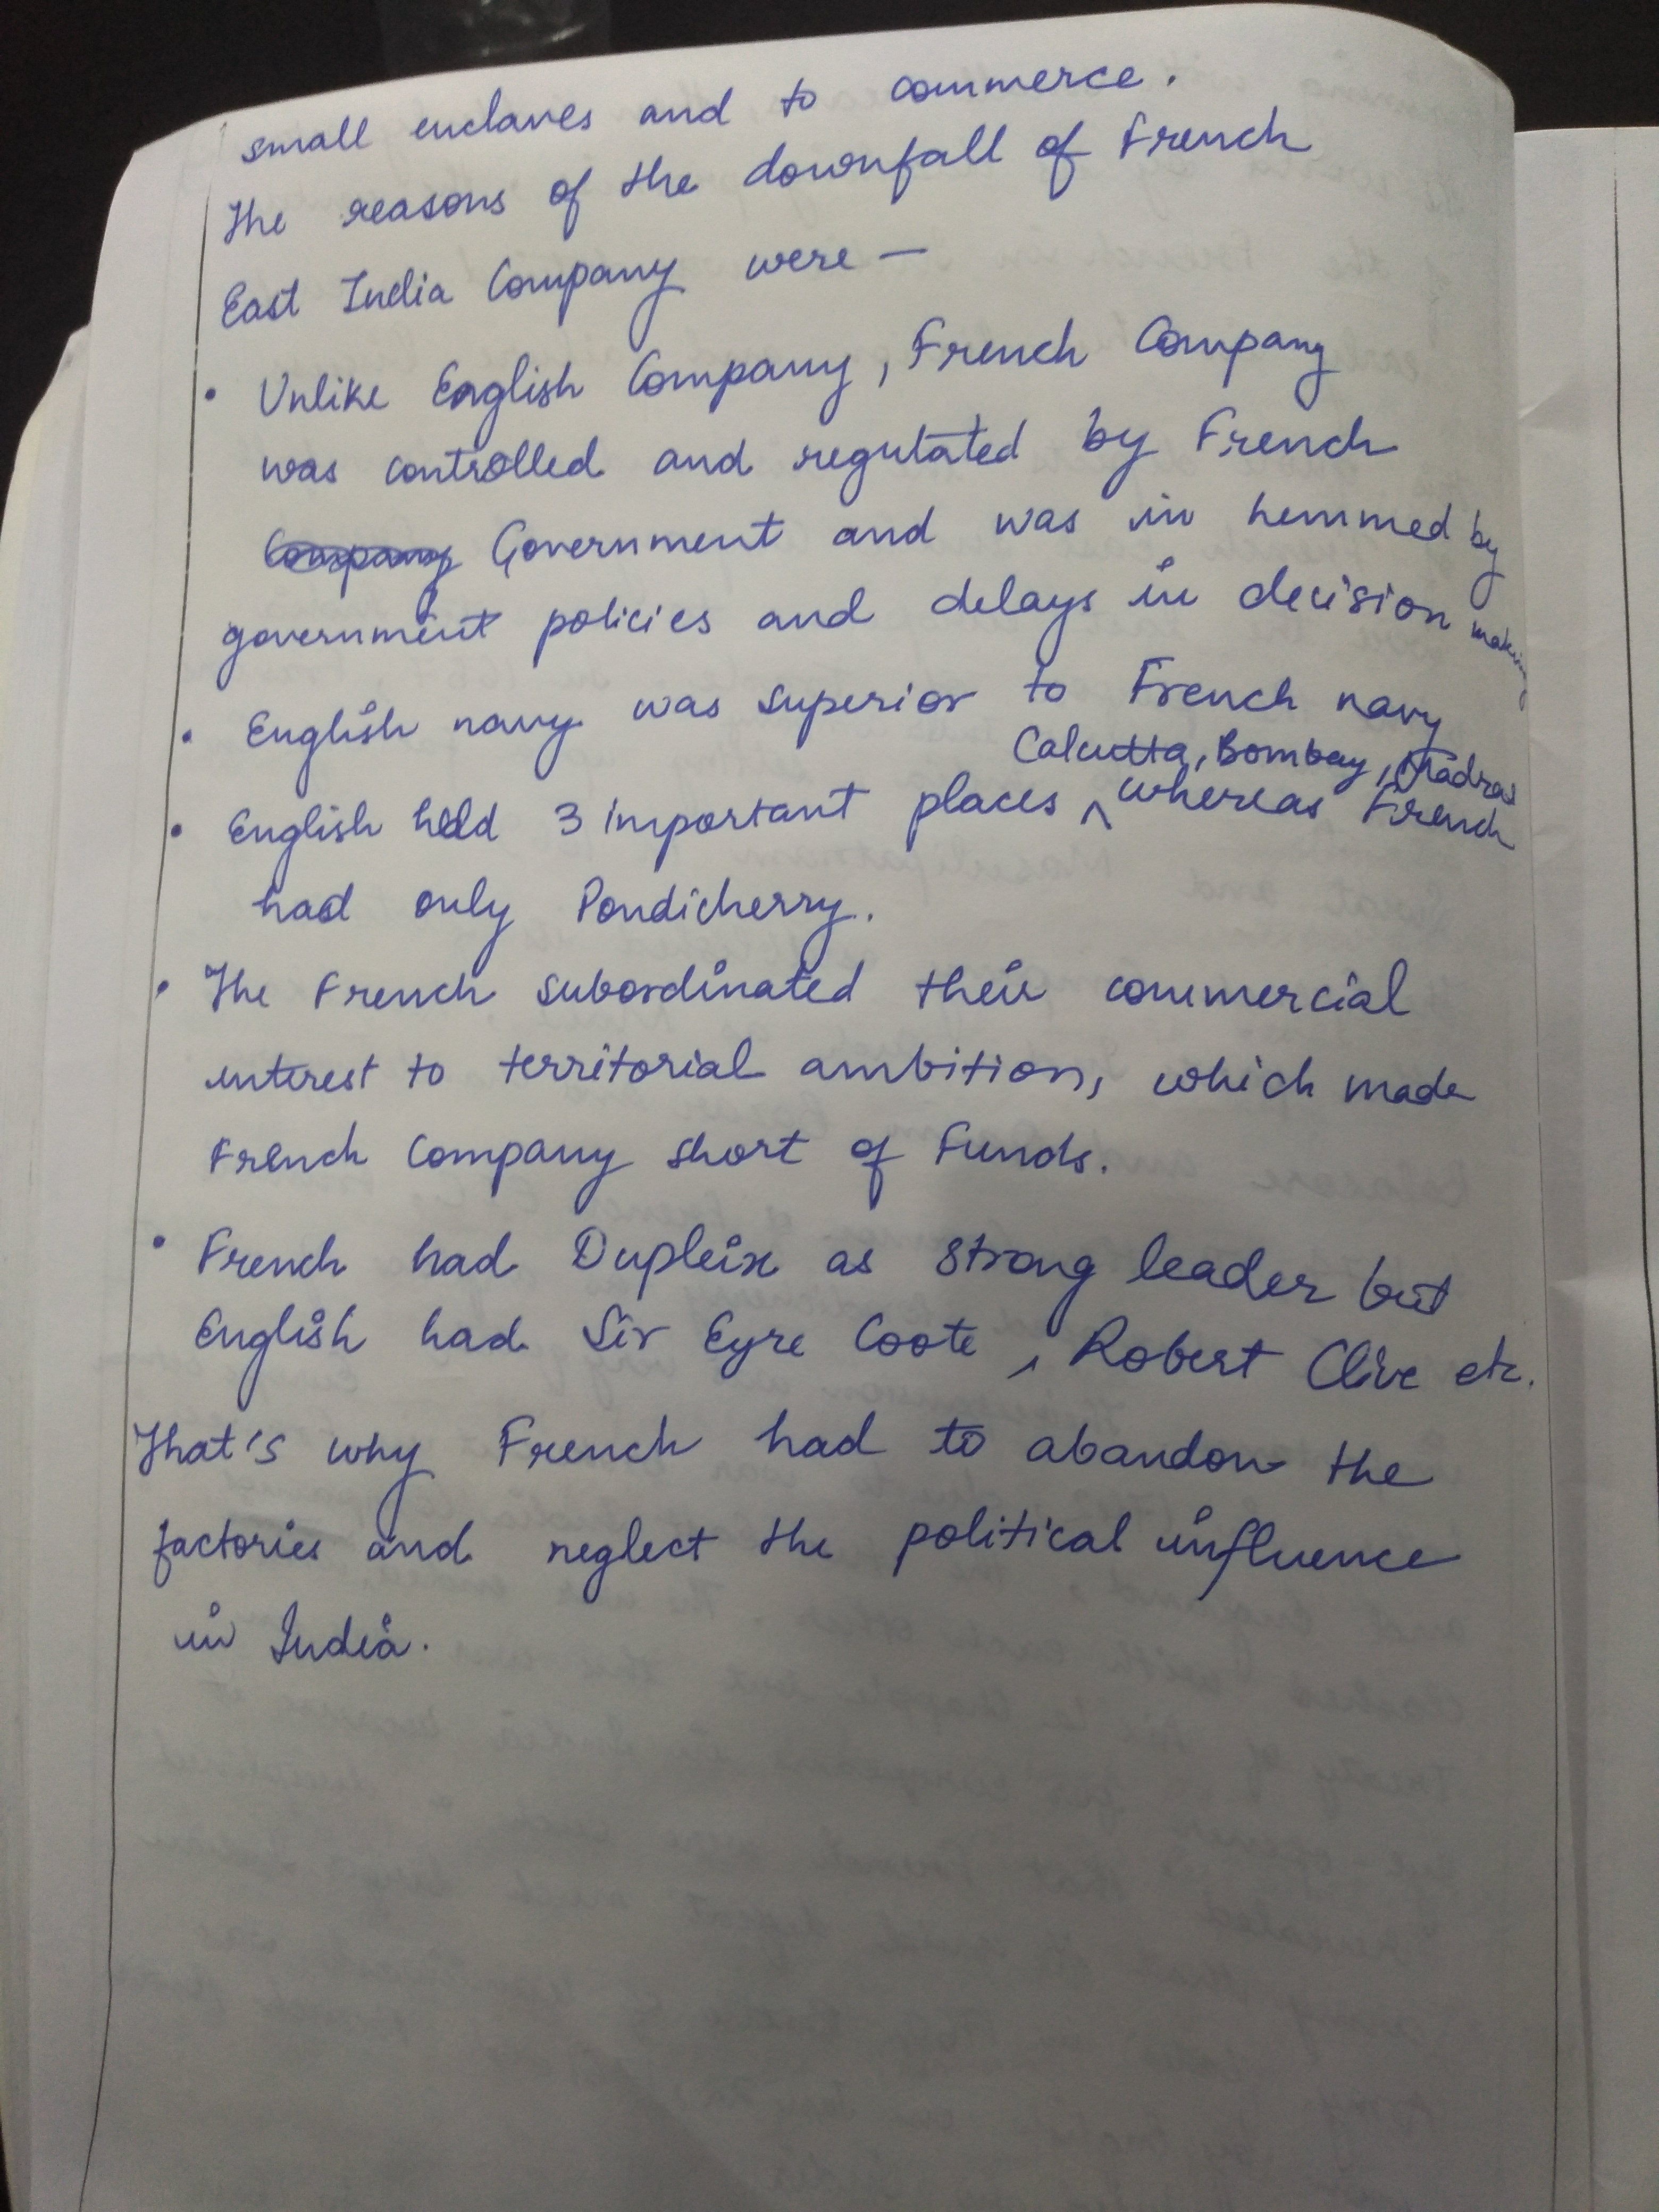 small enclaves and to commerce.
The reasons of the downfall of French
East India Company were —
• Unlike English Company, French Company
was controlled and regulated by French
Government and was in hemmed by
government policies and delays in decision making
• English navy was superior to French navy
Calcutta, Bombay, Madras
• English held 3 important places ^ whereas French
had only Pondicherry.
• The French subordinated their commercial
interest to territorial ambition, which made
French Company short of Funds.
• French had Dupleix as strong leader but
English had Sir Eyre Coote, Robert Clive etc.
That's why French had to abandon the
factories and neglect the political influence
in India.